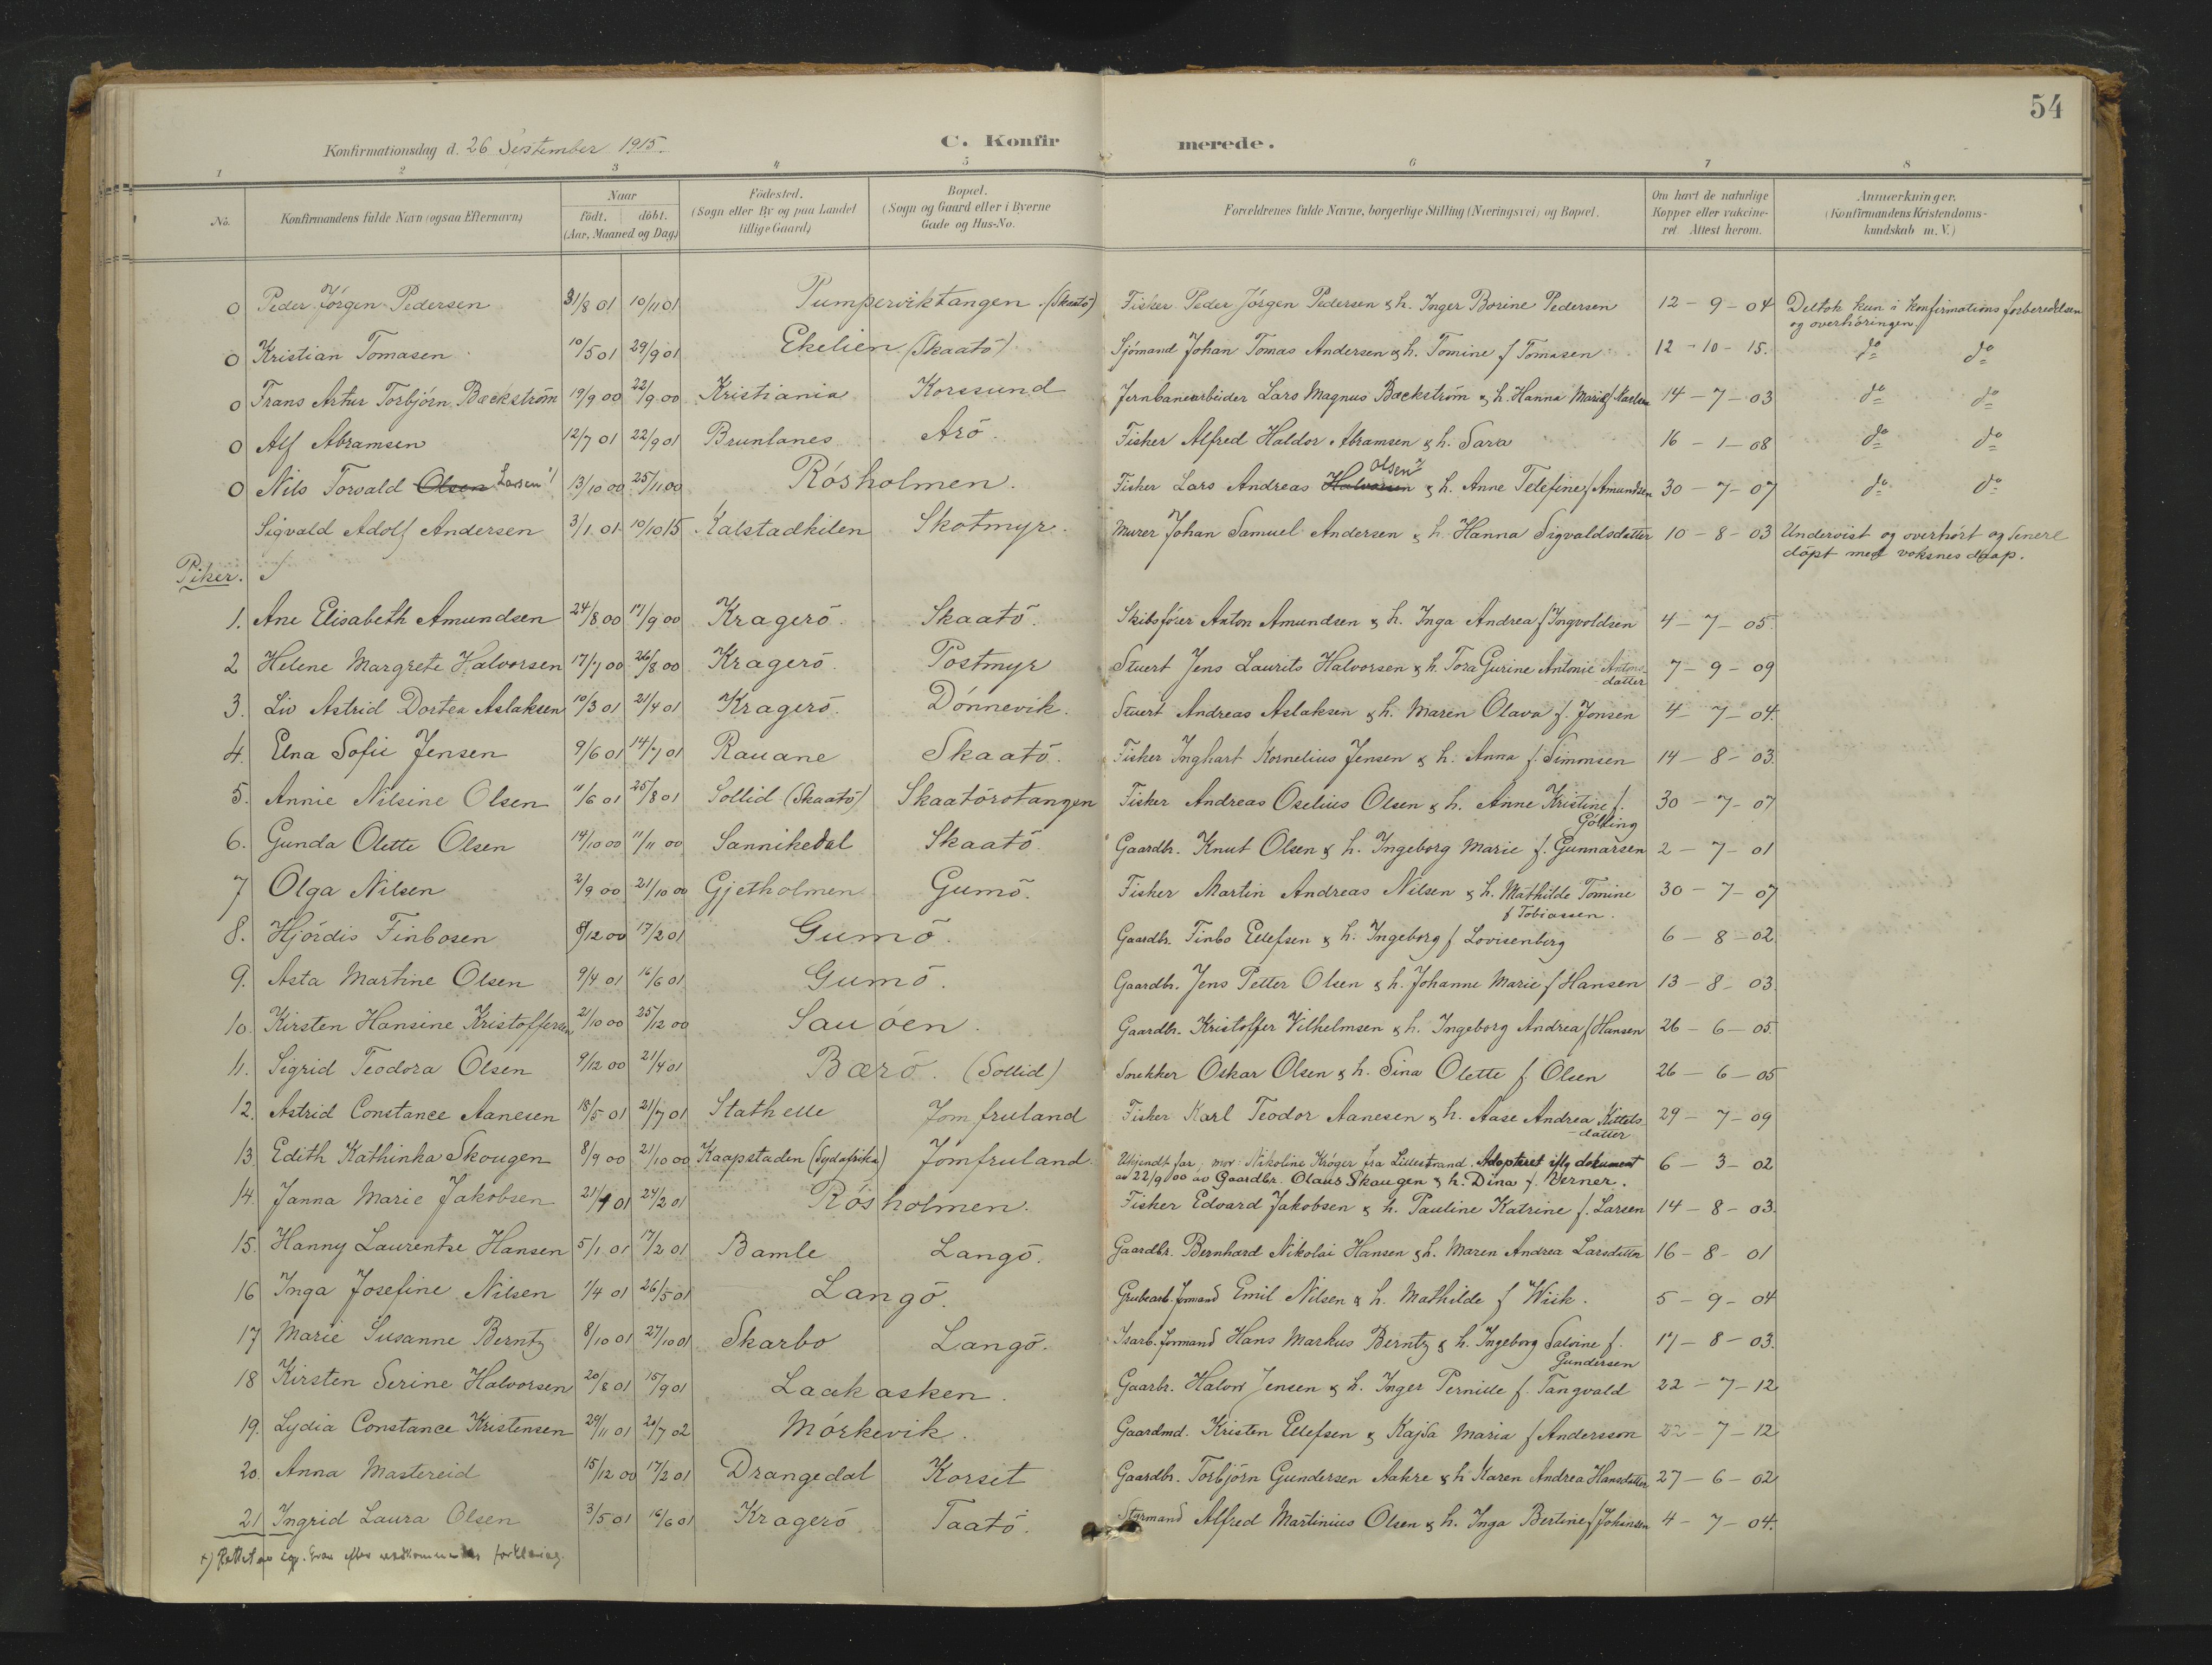 54
Konfirmationsdag d. 26 September 1915.
C. Konfirmerede.
1 2 3 4 5 6 7 8
No. Konfirmandens fulde Navn (ogsaa Efternavn) Naar født. døbt. (Aar, Maaned og Dag) Födested. (Sogn eller By og paa Landet tillige Gaard) Bopæl. (Sogn og Gaard eller i Byerne Gade og Hus-No. Forældrenes fulde Navne, borgerlige Stilling (Næringsvei) og Bopæl. Om havt de naturlige Kopper eller vakcineret Attest herom. Anmærkninger. (Konfirmandens Kristendomskundskab m. V.)
0 Peder Jörgen Pedersen 31/8 01 10/11 01 Pumperviktangen (Skaatö) Fisker Peder Jörgen Pedersen & h. Inger Borine Pedersen 12 - 9 - 04 Deltok kun i konfirmationsforberedelsen
og overhöringen
0 Kristian Tomasen 10/5 01 29/9 01 Ekelien (Skaatö) Sjömand Johan Tomas Andersen & h. Tomine f Tomasen 12 - 10 - 15. do do
0 Frans Artur Torbjörn Bækström 19/9 00 22/9 00 Kristiania Korssund Jernbanearbeider Lars Magnus Bækström & h. Hanna Marie f 14 - 7 - 03 do do
0 Alf Abramsen 12/7 01 22/9 01 Brunlanes Arö Fisker Alfred Haldor Abramsen & h. Sara 16 - 1 - 08 do do
0 Nils Torvald Olsen Larsen 13/10 00 25/11 00 Rösholmen. Fisker Lars Andreas Halvorsen Olsen & h. Anne Telefine f Amundsen 30 - 7 - 07 do do
Sigvald Adolf Andersen 3/1 01 10/10 15 Kalstadkilen Skotmyr. Murer Johan Samuel Andersen & h. Hanna Sigvaldsdatter 10 - 8 - 03 Undervist og overhört og senere
döpt med voksnes daap.
Piker.
1. Ane Elisabeth Amundsen 24/8 00 17/9 00 Kragerö. Skaatö. Skibsförer Anton Amundsen & h. Inga Andrea f Ingvoldsen 4 - 7 - 05.
2 Helene Margrete Halvorsen 17/7 00 26/8 00 Kragerö. Postmyr Stuert Jens Laurits Halvorsen & h. Tora Gurine Antonie Antons-
datter 7 - 9 - 09
3. Liv Astrid Dortea Aslaksen 10/3 01 21/4 01 Kragerö. Dönnevik. Stuert Andreas Aslaksen & h. Maren Olava f. Jonsen 4 - 7 - 04.
4. Elna Sofie Jensen 9/6 01 14/7 01 Rauane Skaatö. Fisker Inghart Kornelius Jensen & h. Anna f. Simonsen 14 - 8 - 03.
5. Annie Nilsine Olsen 11/6 01 25/8 01 Sollid (Skaatö) Skaatörotangen Fisker Andreas Oselius Olsen & h. Anne Kristine f.
Götting 30 - 7 - 07
6. Gunda Olette Olsen 14/10 00 11/11 00 Sannikedal Skaatö. Gaardbr. Knut Olsen & h. Ingeborg Marie f. Gunnarsen 2 - 7 - 01
7 Olga Nilsen 2/9 00 21/10 00 Gjetholmen Gumö. Fisker Martin Andreas Nilsen & h. Mathilde Tomine
f Tobiassen. 30 - 7 - 07
8. Hjördis Finbosen 8/12 00 17/2 01 Gumö. Gaardbr. Finbo Ellefsen & h. Ingeborg f Lovisenberg 6 - 8 - 02
9. Asta Martine Olsen 9/4 01 16/6 01 Gumö. Gaardbr. Jens Petter Olsen & h. Johanne Marie f Hansen 13 - 8 - 03.
10. Kirsten Hansine Kristoffersen 21/10 00 25/12 00 Sauöen. Gaardbr. Kristoffer Vilhelmsen & h. Ingeborg Andrea f Hansen 26 - 6 - 05.
11. Sigrid Teodora Olsen 9/12 00 21/4 01 Bærö. (Sollid) Snekker Oskar Olsen & h. Sina Olette f. Olsen 26 - 6 - 05
12. Astrid Constance Aanesen 18/5 01 21/7 01 Stathelle Jomfruland Fisker Karl Teodor Aanesen & h. Aase Andrea Kittels-
datter 29 - 7 - 09
13. Edith Kathinka Skougen 8/9 00 21/10 00 Kaapstaden (Sydafrika) Jomfruland. Ukjendt far, mor: Nikoline Kröger fra Lillestrand. Adopteret iflg dokument
av 22/9 00 av Gaardbr. Olaus Skaugen & h. Dina f. Berner. 6 - 3 - 02
14. Janna Marie Jakobsen 21/1 01 24/2 01 Rösholmen. Fisker Edvard Jakobsen & h. Pauline Katrine f. Larsen 14 - 8 - 03.
15. Hanny Laurentze Hansen 5/1 01 17/2 01 Bamle Langö. Gaardbr. Bernhard Nikolai Hansen & h. Maren Andrea Larsdatter 16 - 8 - 01
16 Inga Josefine Nilsen 1/4 01 26/5 01 Langö. Grubearb. formand Emil Nilsen & h. Mathilde f Wiik. 5 - 9 - 04
17 Marie Susanne Berntz 8/10 01 27/10 01 Skarbo Langö. Isarb. formand Hans Markus Berntz & h. Ingeborg Salvine f.
Gundersen 17 - 8 - 03.
18 Kirsten Serine Halvorsen 20/8 01 15/9 01 Laakasken. Gaarbr. Halvor Jensen & h. Inger Pernille f. Tangvald 22 - 7 - 12
19. Lydia Constance Kristensen 29/11 01 20/7 02 Mörkevik. Gaardmd. Kristen Ellefsen & Kajsa Maria f Andersson 22 - 7 - 12
20. Anna Mastereid 15/12 00 17/2 01 Drangedal Korset Gaardbr. Torbjörn Gundersen Aakre & h Karen Andrea Hansdatter 27 - 6 - 02
21 Ingrid Laura Olsen 3/5 01 16/6 01 Kragerö Taatö. Styrmand Alfred Martinius Olsen & h. Inga Bertine f Johinsen 4 - 7 - 04.
x) Rettet av efter vedkommendes forklaring.